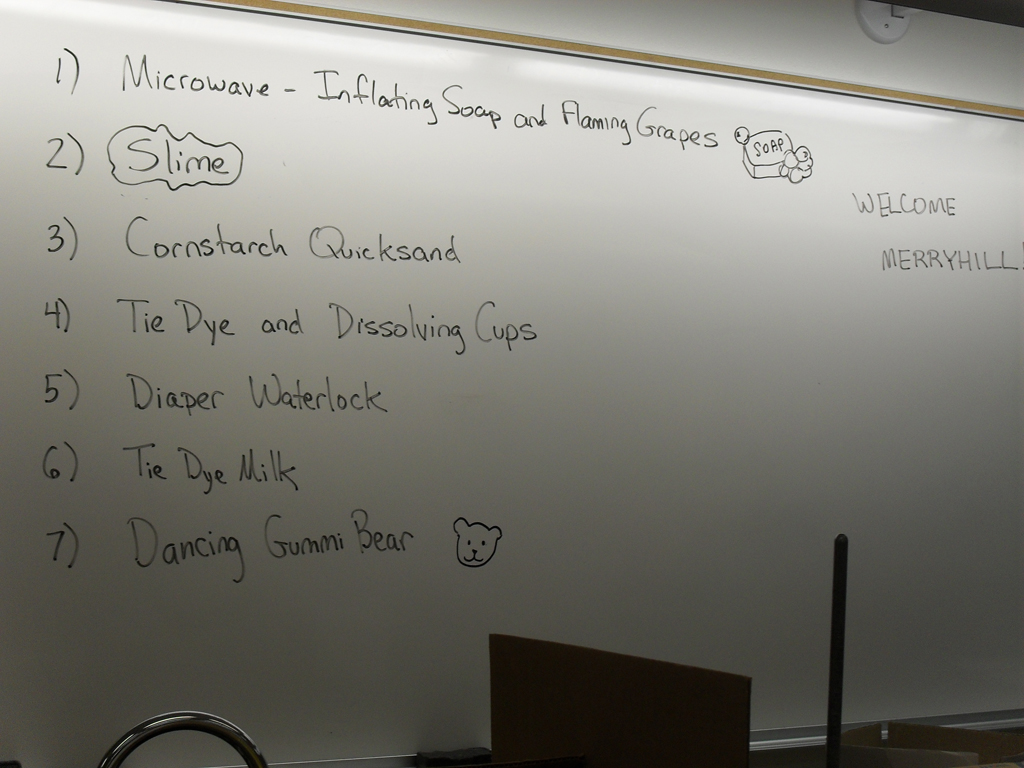 1) Microwave - Inflating Soap and Flaming Grapes
SOAP
2) Slime
WELCOME
MERRYHILL!
3) Cornstarch Quicksand
4) Tie Dye and Dissolving Cups
5) Diaper Waterlock
6) Tie Dye Milk
7) Dancing Gummi Bear